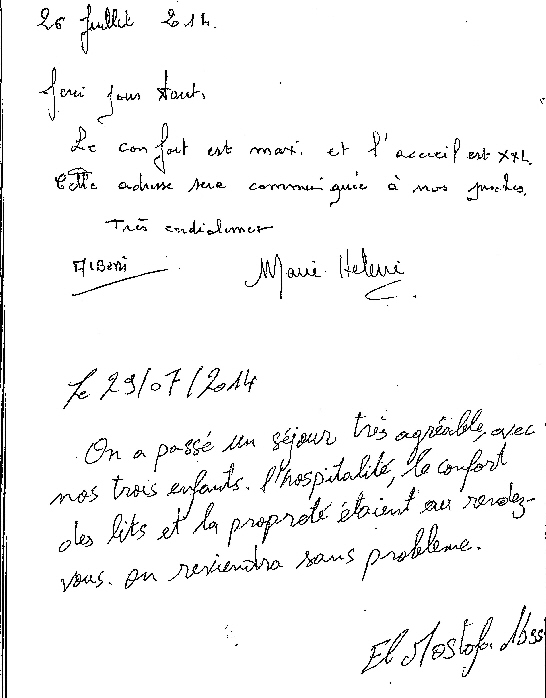 26 Juillet 2014.
Merci pour tout.
Le confort est maxi. et l'accueil est XXL
Cette adresse sera communiquée à nos proches.
Très cordialement
Marie Helene
Le 29/07/2014
On a passé un séjour très agréable, avec
nos trois enfants. l'hospitalité, le confort
des lits et la propreté étaient au rendez-
vous. on reviendra sans probleme.
El Mostafa